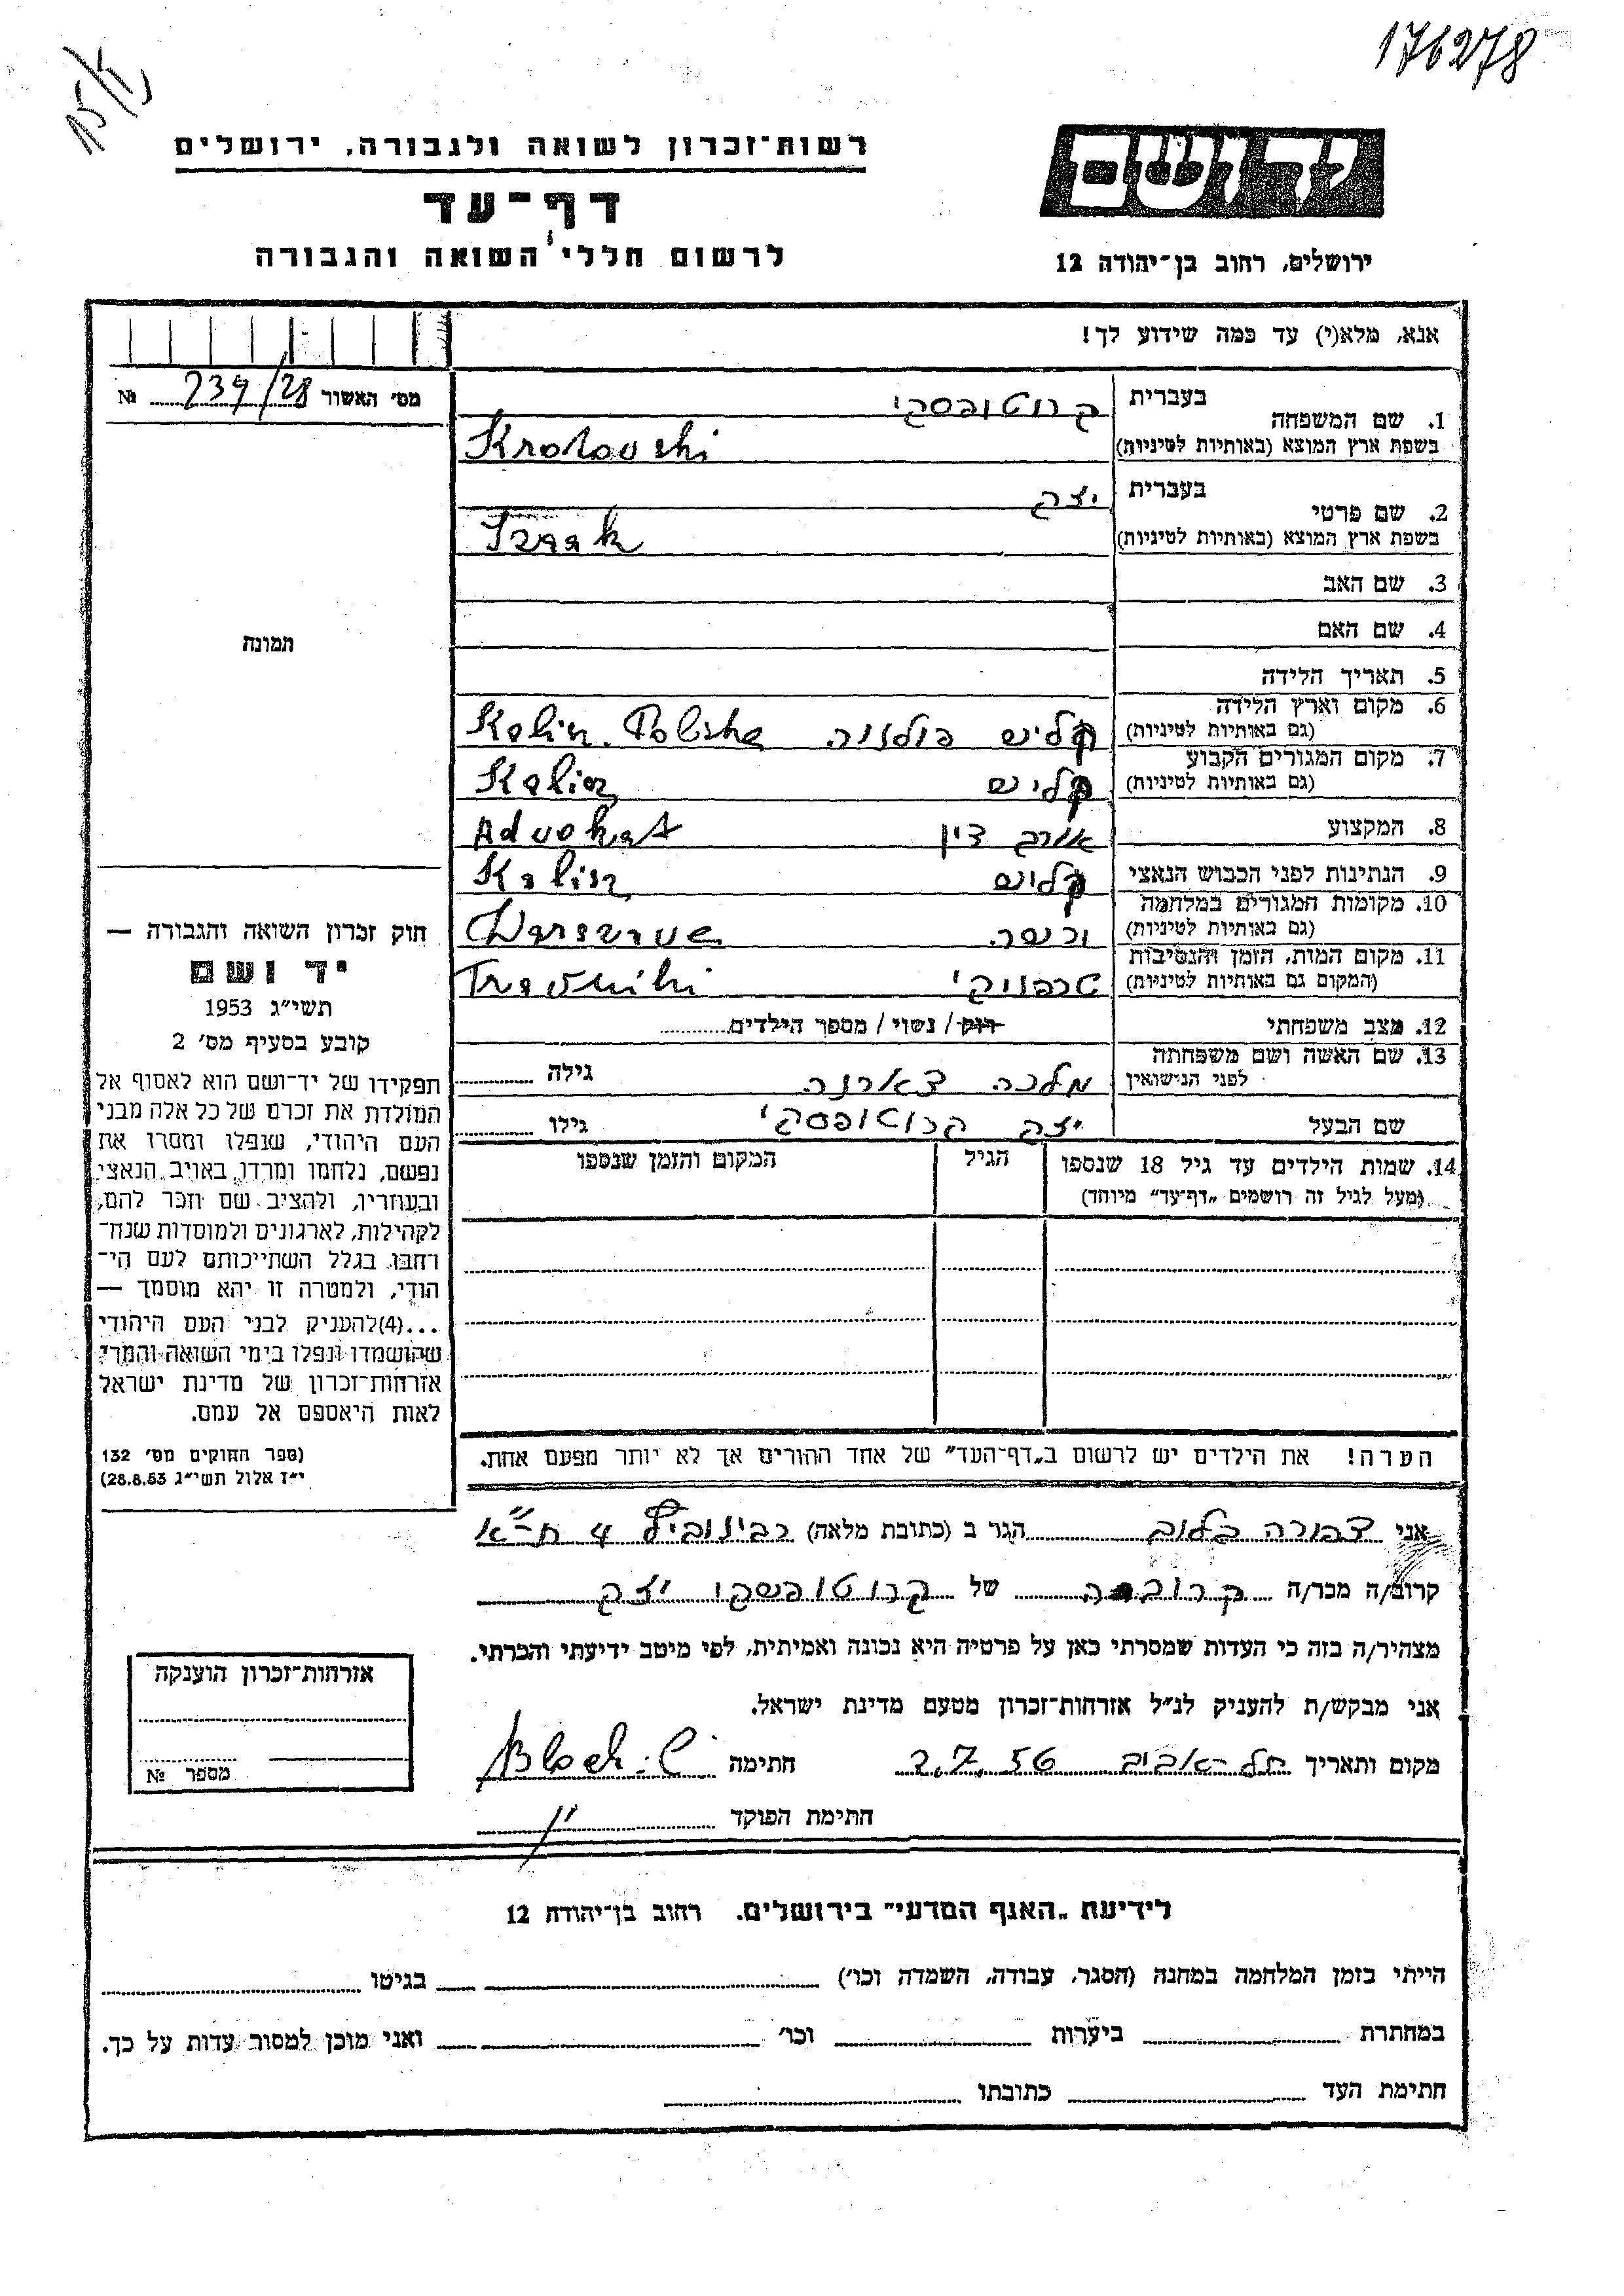 176278
רשות־זכרון לשואה ולגבורה, ירושלים
דף־עד
לרשום חללי השואה והגבורה
יד ושם
ירושלים, רחוב בן־יהודה 12
אנא, מלא(י) עד כמה שידוע לך!
מס׳ האשור 239/28 №
1. שם המשפחה
בעברית קרוטובסקי
בשפת ארץ המוצא (באותיות לטיניות) Krotovski
2. שם פרטי
בעברית יצק
בשפת ארץ המוצא (באותיות לטיניות) Izaak
3. שם האב
4. שם האם
5. תאריך הלידה
6. מקום וארץ הלידה
(גם באותיות לטיניות) קליש פולניה Kalisz. Polska
7. מקום המגורים הקבוע
(גם באותיות לטיניות) קליש Kalisz
8. המקצוע אורך דין Advokat
9. הנתינות לפני הכבוש הנאצי קליש Kalisz
10. מקומות המגורים במלחמה
(גם באותיות לטיניות) ורשה Warszawa
11. מקום המות, הזמן והנסיבות
(המקום גם באותיות לטיניות) טרבניקי Travniki
12. מצב משפחתי רוק / נשוי / מספר הילדים
13. שם האשה ושם משפחתה
לפני הנישואין מלכה גילה
שם הבעל יצק קרוטופסקי גילו
14. שמות הילדים עד גיל 18 שנספו
(מעל לגיל זה רושמים „דף־עד״ מיוחד)
הגיל
המקום והזמן שנספו
הערה! את הילדים יש לרשום ב„דף־העד״ של אחד ההורים אך לא יותר מפעם אחת.
תמונה
חוק זכרון השואה והגבורה —
יד ושם
תשי״ג 1953
קובע בסעיף מס׳ 2
תפקידו של יד־ושם הוא לאסוף אל
המולדת את זכרם של כל אלה מבני
העם היהודי, שנפלו ומסרו את
נפשם, נלחמו ומרדו באויב הנאצי
ובעוזריו, ולהציב שם וזכר להם,
לקהילות, לארגונים ולמוסדות שנח־
רחבו בגלל השתייכותם לעם הי־
הודי, ולמטרה זו יהא מוסמך —
...(4)להעניק לבני העם היהודי
שהושמדו ונפלו בימי השואה והמרי
אזרחות־זכרון של מדינת ישראל
לאות היאספם אל עמם.
(ספר החוקים מס׳ 132
י״ז אלול תשי״ג 28.8.53)
אני צפורה בלוך הגר ב (כתובת מלאה) 4 ת״א
קרוב/ה מכר/ה קרובה של קרוטופשקי יצק
מצהיר/ה בזה כי העדות שמסרתי כאן על פרטיה היא נכונה ואמיתית, לפי מיטב ידיעתי והכרתי.
אני מבקש/ת להעניק לנ״ל אזרחות־זכרון מטעם מדינת ישראל.
מקום ותאריך תל־אביב 2.7.56 חתימה Bloch. C
חתימת הפוקד
אזרחות־זכרון הוענקה
מספר №
לידיעת „האגף המדעי״ בירושלים. רחוב בן־יהודה 12
הייתי בזמן המלחמה במחנה (הסגר, עבודה, השמדה וכו׳) בגיטו
במחתרת ביערות וכו׳ ואני מוכן למסור עדות על כך.
חתימת העד כתובתו